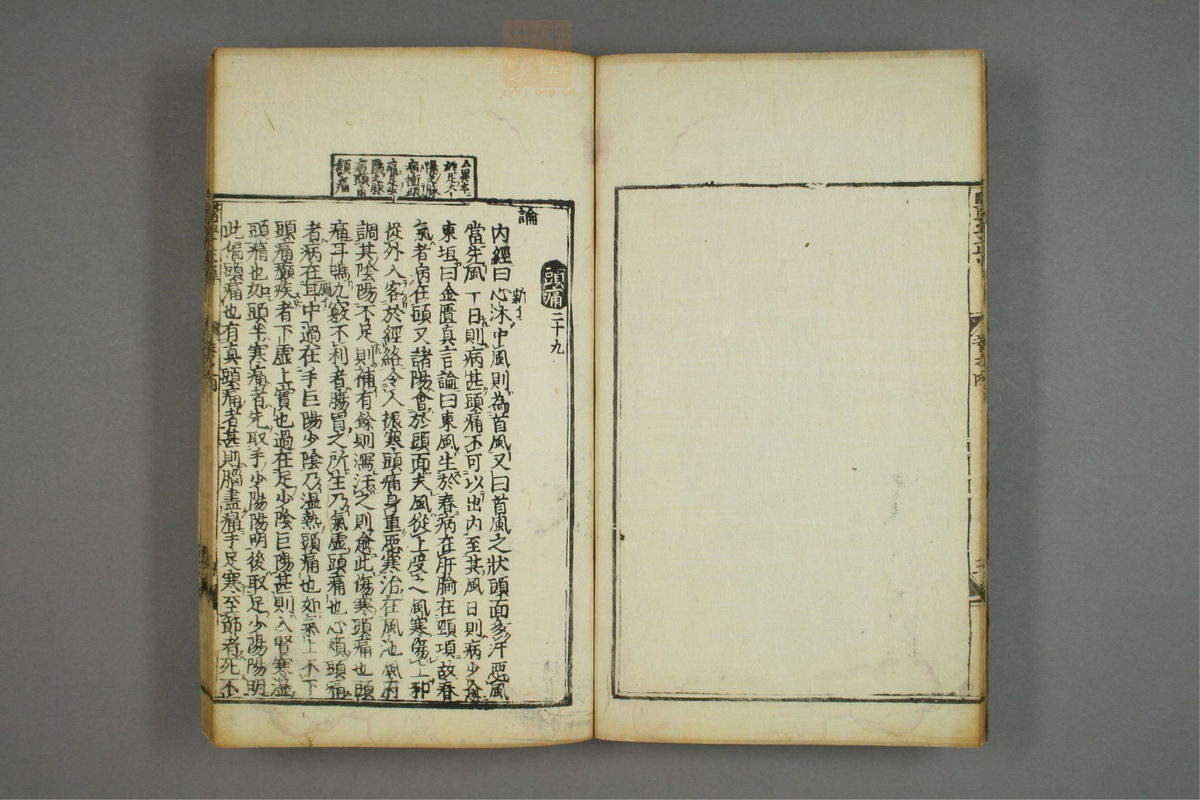 頭痛二十九
論
内經曰新沐中風則為首風又曰首風之狀頭面多汗惡風
當先風一日則病甚頭痛不可以出内至其風日則病少愈
東垣曰金匱真言論曰東風生於春病在肝腧在頸項故春
氣者病在頭又諸陽會於頭面夫風從上受之風寒傷上邪
從外入客於經絡令人振寒頭痛身重惡寒治在風池風府
調其陰陽不足則補有餘則瀉汗之則愈此傷寒頭痛也頭
痛耳鳴九竅不利者腸胃之所生乃氣虛頭痛也心煩頭痛
者病在耳中過在手巨陽少陰乃濕熱頭痛也如氣上不下
頭痛癲疾者下虛上實也過在足少陰巨陽甚則入腎寒濕
頭痛也如頭半寒痛者先取手少陽陽明後取足少陽陽明
此偏頭痛也有真頭痛者甚則腦盡痛手足寒至節者死不